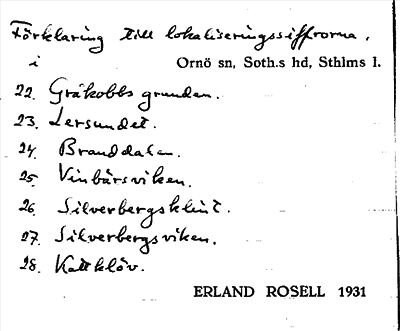 Förklaring till lokaliseringssiffrorna.
i Ornö sn, Soth.s hd, Sthlms l.
22. Gråkobbsgrunden.
23. Lersundet.
24. Branddalen.
25. Vinbärsviken.
26. Silverbergsklint.
27. Silverbergsviken.
28. Kattklöv.
ERLAND ROSELL 1931